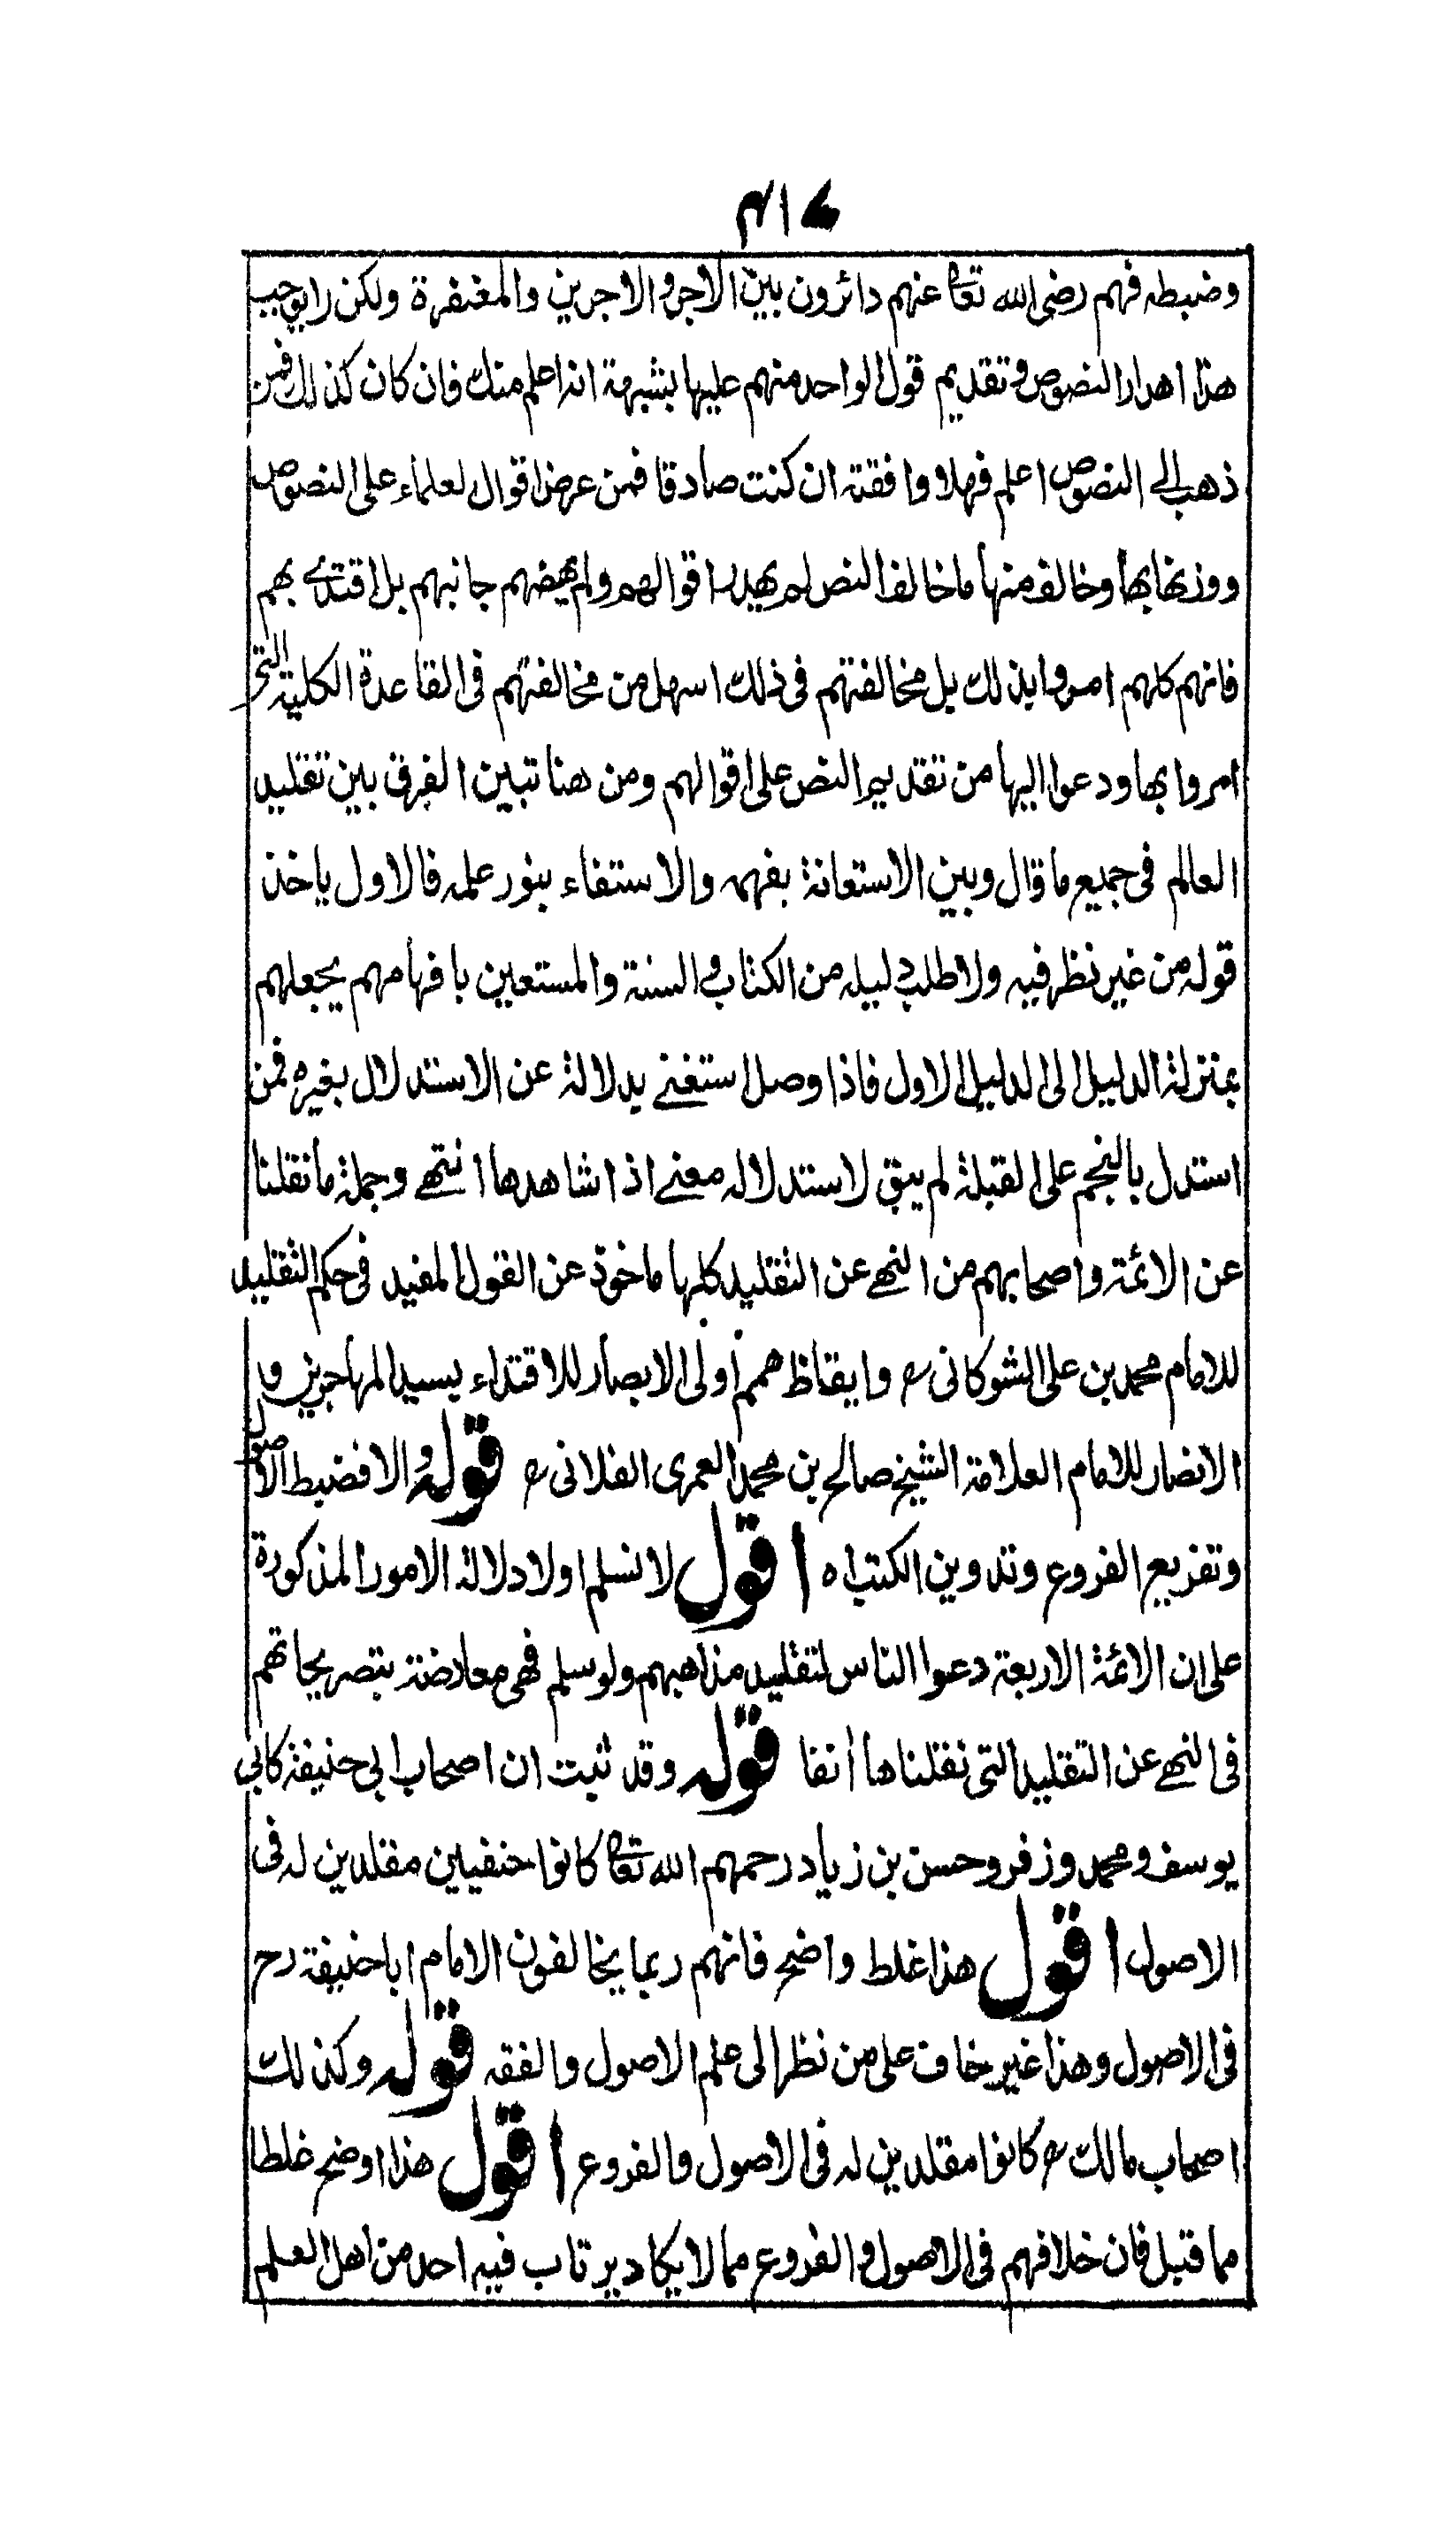 ٤١٢
وضبطه فهم رضى الله تعالى عنهم دائرون بين الاجر والاجرين والمغفرة ولكن لا يوجب
هذا اهدار النصوص وتقديم قول الواحد منهم عليها بشبهة انه اعلم منك فان كان كذلك فمن
ذهب الى النصوص اعلم فهلا وافقته ان كنت صادقا فمن عرض اقوال العلماء على النصوص
ووزنها بها وخالف منها ما خالف النص لم يهدر اقوالهم ولم يهضم جانبهم بل اقتدى بهم
فانهم كلهم امروا بذلك بل مخالفتهم فى ذلك اسهل من مخالفتهم فى القاعدة الكلية التى
امروا بها ودعوا اليها من تقديم النص على اقوالهم ومن هنا تبين الفرق بين تقليد
العالم فى جميع ما قال وبين الاستعانة بفهمه والاستضاء بنور علمه فالاول ياخذ
قوله من غير نظر فيه ولا طلب دليله من الكتاب والسنة والمستعين بافهامهم يجعلهم
بمنزلة الدليل الى الدليل الاول فاذا وصل استغنى بدلالة عن الاستدلال بغيره فمن
استدل بالنجم على القبلة لم يبق لاستدلاله معنى اذا شاهدها انتهى وجملة ما نقلنا
عن الائمة واصحابهم من النهى عن التقليد كلها ماخوذ عن القول المفيد فى حكم التقليد
للامام محمد بن على الشوكانى رح وايقاظ همم أولى الابصار للاقتداء بسيد المهاجرين و
الانصار للامام العلامة الشيخ صالح بن محمد العمرى الفلانى رح قوله والا فضبط الاصول
وتفريع الفروع وتدوين الكتب اه اقول لا نسلم اولا دلالة الامور المذكورة
على ان الائمة الاربعة دعوا الناس لتقليد مذاهبهم ولو سلم فهى معارضة بتصريحاتهم
فى النهى عن التقليد التى نقلناها أنفا قوله وقد ثبت ان اصحاب ابى حنيفة كابى
يوسف ومحمد وزفر وحسن بن زياد رحمهم الله تعالى كانوا حنفيين مقلدين له فى
الاصول اقول هذا غلط واضح فانهم ربما يخالفون الامام ابا حنيفة رح
فى الاصول وهذا غير خاف على من نظر الى علم الاصول والفقه قوله وكذلك
اصحاب مالك رح كانوا مقلدين له فى الاصول والفروع اقول هذا اوضح غلطا
مما قبل فان خلافهم فى الاصول والفروع مما لا يكاد يرتاب فيه احد من اهل العلم